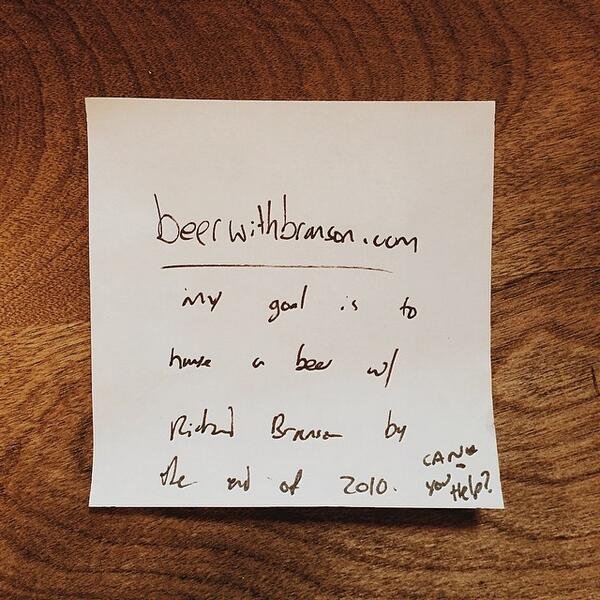 beerwithbranson.com
my goal is to
have a beer w/
Richard Branson by
the end of 2010.
CAN
you Help?